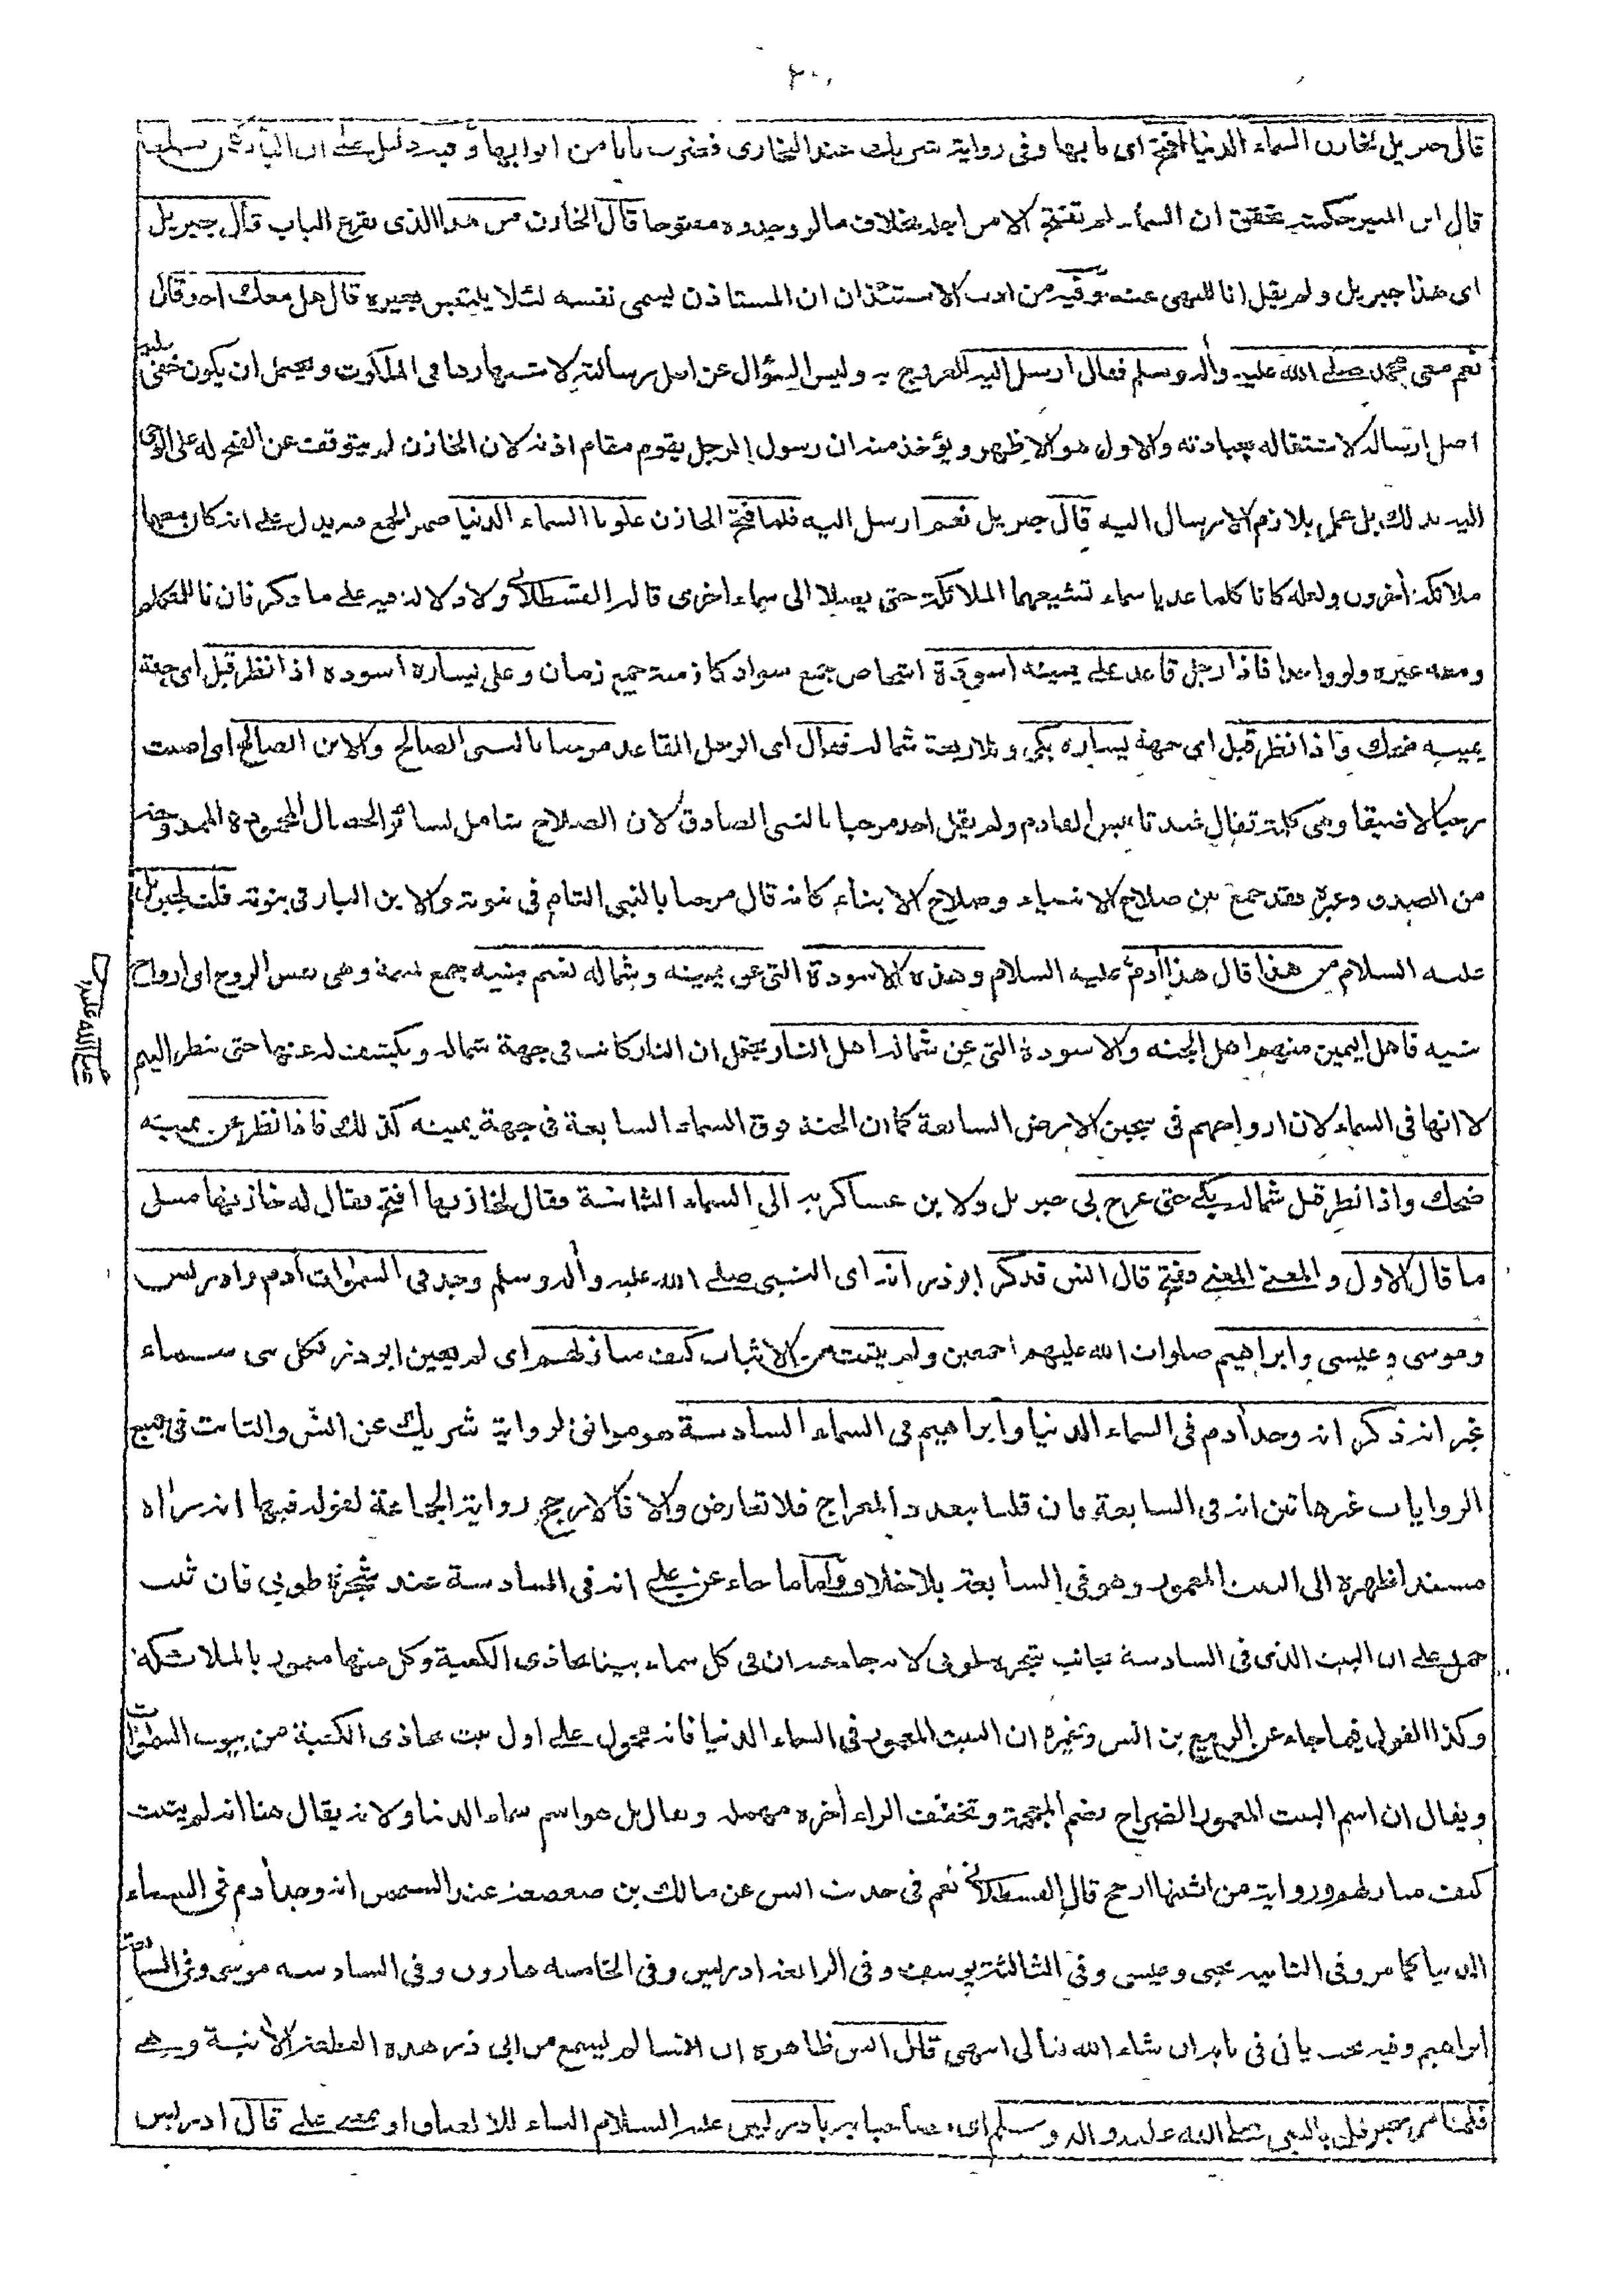 قال جبريل لخازن السماء الدنيا افتح اى بابها وفى رواية شريك عند البخارى فضرب بابا من ابوابها وفيه دليل على ان الباب
قال ابن المنير حكمته تحقيق ان السماء لم تفتح الا من اجله بخلاف ما لو وجدوه مفتوحا قال الخازن من هذا الذى يقرع الباب قال جبريل
اى هذا جبريل ولم يقل انا للنهى عنه وفيه من ادب الاستئذان ان المستاذن يسمى نفسه لئلا يلتبس بغيره قال هل معك احد قال
نعم معى محمد صلى الله عليه وآله وسلم فقال أرسل اليه للعروج به وليس السؤال عن اصل رسالته لاشتهارها فى الملكوت ويحتمل ان يكون خفى عليه
اصل ارساله لاشتغاله بعبادته والاول هو الاظهر ويؤخذ منه ان رسول الرجل يقوم مقام اذنه لان الخازن لم يتوقف عن الفتح له على الوحى
اليه بذلك بل عمل بلازم الارسال اليه قال جبريل نعم ارسل اليه فلما فتح الخازن علونا السماء الدنيا ضمير الجمع فيه يدل على انه كان معهما
ملائكة أخرون ولعله كانا كلما عديا سماء تشيعهما الملائكة حتى يصلا الى سماء اخرى قاله القسطلانى ولا دلالة فيه على ما ذكر فان نا للمتكلم
ومعه غيره ولو واحدا فاذا رجل قاعد على يمينه اسودة اشخاص جمع سواد كازمنة جمع زمان وعلى يساره اسودة اذا نظر قبل اى جهة
يمينه ضحك واذا نظر قبل اى جهة يساره بكى وللاربعة شماله فقال اى الرجل القاعد مرحبا بالنبى الصالح والابن الصالح اى اصبت
رحبا لا ضيقا وهى كلمة تقال عند تانيس القادم ولم يقل احد مرحبا بالنبى الصادق لان الصلاح شامل لسائر الخصال المحمودة الممدوحة
من الصدق وغيره فقد جمع بين صلاح الانبياء وصلاح الابناء كانه قال مرحبا بالنبى التام فى نبوته والابن البار فى بنوته قلت لجبريل
عليه السلام من هذا قال هذا آدم عليه السلام وهذه الاسودة التى عن يمينه وشماله نسم بنيه جمع نسمة وهى نفس الروح اى ارواح
بنيه فاهل اليمين منهم اهل الجنة والاسودة التى عن شماله اهل النار يحتمل ان النار كانت فى جهة شماله ويكشف له عنها حتى ينظر اليهم
لا انها فى السماء لان ارواحهم فى سجين الارض السابعة كما ان الجنة فوق السماء السابعة فى جهة يمينه كذلك فاذا نظر عن يمينه
ضحك واذا نظر قبل شماله بكى حتى عرج بى جبريل ولابن عساكر به الى السماء الثانية فقال لخازنها افتح فقال له خازنها مثل
ما قال الاول والمعنى المعنى ففتح قال انس فذكر ابو ذر انه اى النبى صلى الله عليه وآله وسلم وجد فى السموات آدم وادريس
وموسى وعيسى وابراهيم صلوات الله عليهم اجمعين ولم يثبت من الاثبات كيف منازلهم اى لم يعين ابو ذر لكل نبى سماء
غير انه ذكر انه وجد آدم فى السماء الدنيا وابراهيم فى السماء السادسة هو موافق لرواية شريك عن انس والثابت فى جميع
الروايات غير هاتين انه فى السابعة فان قلنا بتعدد المعراج فلا تعارض والا فالارجح رواية الجماعة لقوله فيها انه رآه
مسندا ظهره الى البيت المعمور وهو فى السابعة بلا خلاف واما ما جاء عن على انه فى السادسة عند شجرة طوبى فان ثبت
حمل على ان البيت الذى فى السادسة بجانب شجرة طوبى لانه جاء عنه ان فى كل سماء بيتا يحاذى الكعبة وكل منها معمور بالملائكة
وكذا القول فيما جاء عن الربيع بن انس وغيره ان البيت المعمور فى السماء الدنيا فانه محمول على اول بيت يحاذى الكعبة من بيوت السموات
ويقال ان اسم البيت المعمور الضراح بضم المعجمة وتخفيف الراء اخره مهملة ويقال بل هو اسم سماء الدنيا ولانه يقال هنا انه لم يثبت
كيف منازلهم ورواية من اثبتها ارجح قال القسطلانى نعم فى حديث انس عن مالك بن صعصعة عند الشيخين انه وجد آدم فى السماء
الدنيا كما مر وفى الثانية يحيى وعيسى وفى الثالثة يوسف وفى الرابعة ادريس وفى الخامسة هارون وفى السادسة موسى وفى السابعة
ابراهيم وفيه بحث ياتى فى بابه ان شاء الله تعالى انتهى قال انس ظاهره ان انسا لم يسمع من ابى ذر هذه القطعة الآتية وهى
فلما مر جبريل بالنبى صلى الله عليه وآله وسلم اى مصاحبا به بادريس عليه السلام الباء للالصاق او بمعنى على قال ادريس